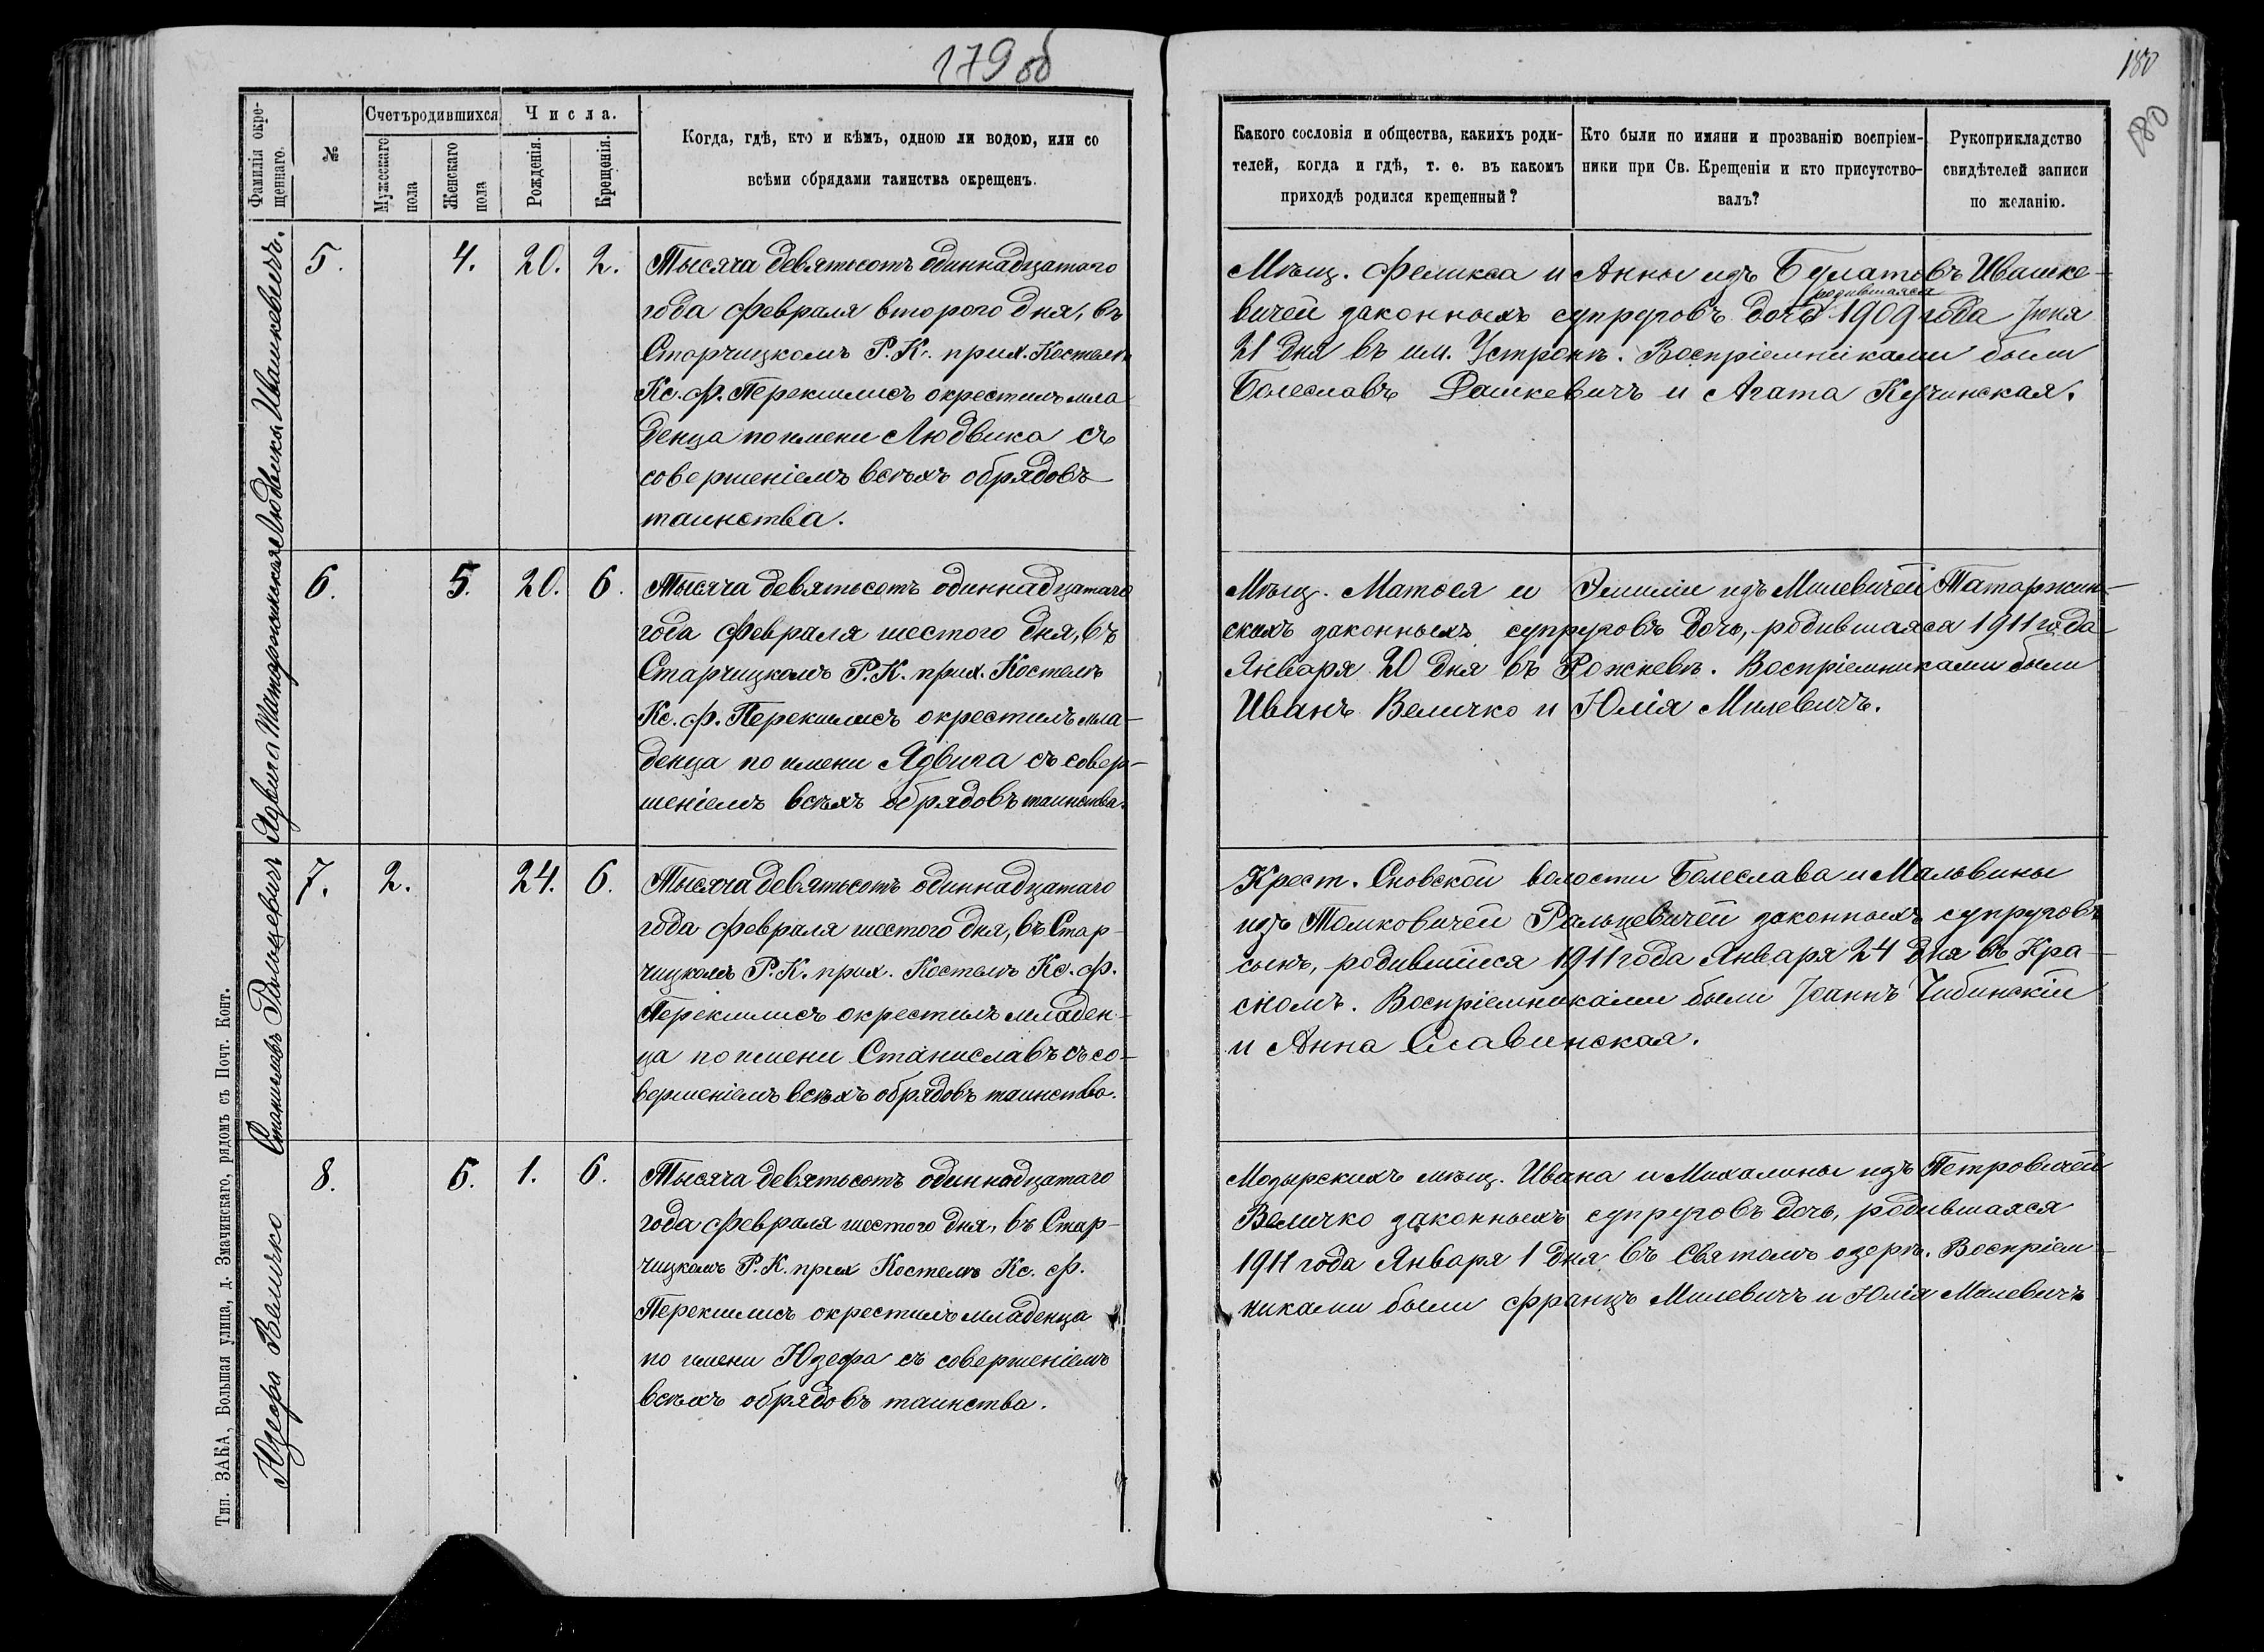 179 об
180
180
Фамилія окре-
щеннаго.
№
Счетъ родившихся
Мужескаго
пола
Женскаго
пола
Числа.
Рожденія.
Крещенія.
Когда, гдѣ, кто и кѣмъ, одною ли водою, или со
всѣми обрядами таинства окрещенъ.
Какого сословія и общества, какихъ роди-
телей, когда и гдѣ, т. е. въ какомъ
приходѣ родился крещенный?
Кто были по имяни и прозванію воспріем-
ники при Св. Крещеніи и кто присутство-
валъ?
Рукоприкладство
свидѣтелей записи
по желанію.
Людвика Ивашкевичъ.
5.
4.
20.
2.
Тысяча девятьсотъ одиннадцатаго
года февраля второго дня, въ
Старчицкомъ Р. К. прих. Костелѣ
Кс. Ф. Перекшлисъ окрестилъ мла
денца по имени Людвика съ
совершеніемъ всѣхъ обрядовъ
таинства.
Мѣщ. Феликса и Анны изъ Булатовъ Ивашке-
родившаяся
вичей законныхъ супруговъ дочь 1909 года Іюня
21 дня въ им. Устронь. Воспріемниками были
Болеславъ Рашкевичъ и Агата Кучинская.
Ядвига Татаржинская
6.
5.
20.
6.
Тысяча девятьсотъ одиннадцатаго
года февраля шестого дня, въ
Старчицкомъ Р. К. прих. Костелѣ
Кс. Ф. Перекшлисъ окрестилъ мла-
денца по имени Ядвига съ совер-
шеніемъ всѣхъ обрядовъ таинства.
Мѣщ. Матвея и Эмиліи изъ Милевичей Татаржин-
скихъ законныхъ супруговъ дочь, родившаяся 1911 года
Января 20 дня въ Рожневѣ. Воспріемниками были
Иванъ Величко и Юлія Милевичъ.
Станиславъ Ральцевичъ
7.
2.
24.
6.
Тысяча девятьсотъ одиннадцатаго
года февраля шестого дня, въ Стар-
чицкомъ Р. К. прих. Костелѣ Кс. Ф.
Перекшлисъ окрестилъ младен-
ца по имени Станиславъ съ со-
вершеніемъ всѣхъ обрядовъ таинства.
Крест. Сновской волости Болеслава и Мальвины
изъ Томковичей Ральцевичей законныхъ супруговъ
сынъ, родившійся 1911 года Января 24 дня въ Кра-
сномъ. Воспріемниками были Іоаннъ Чибинскій
и Анна Славинская.
Юзефа Величко
8.
6.
1.
6.
Тысяча девятьсотъ одиннадцатаго
года февраля шестого дня, въ Стар-
чицкомъ Р. К. прих Костелѣ Кс. Ф.
Перекшлисъ окрестилъ младенца
по имени Юзефа съ совершеніемъ
всѣхъ обрядовъ таинства.
Мозырскихъ мѣщ. Ивана и Михалины изъ Петровичей
Величко законныхъ супруговъ дочь, родившаяся
1911 года Января 1 дня въ Святомъ озерѣ. Воспріем-
никами были Францъ Милевичъ и Юлія Милевичъ
Тип. ЗАКА, Большая улица, д. Змачинскаго, рядомъ съ Почт. Конт.